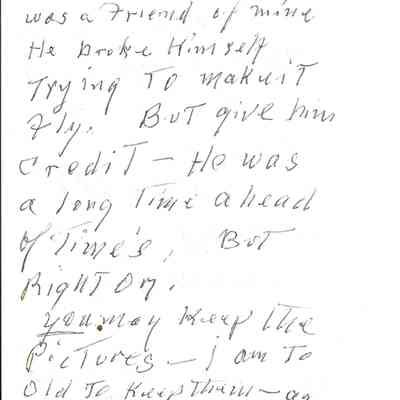 was a Friend of mine
He broke Himself
Trying To make iT
Fly. BuT give him
CrediT - He was
a long Time ahead
of Time's, BuT
RighT On.
You may Keep The
PicTures - I am To
Old To Keep Them - as